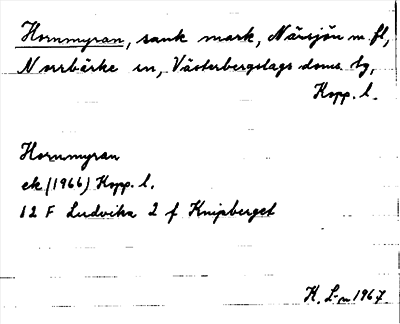 Hornmyran, sank mark, Närsjön m fl,
Norrbärke sn, Västerbergslags doms. tg,
Kopp. l.
Hornmyran
ek (1966) Kopp. l.
12 F Ludvika 2 f Knipberget
K. L-m 1967